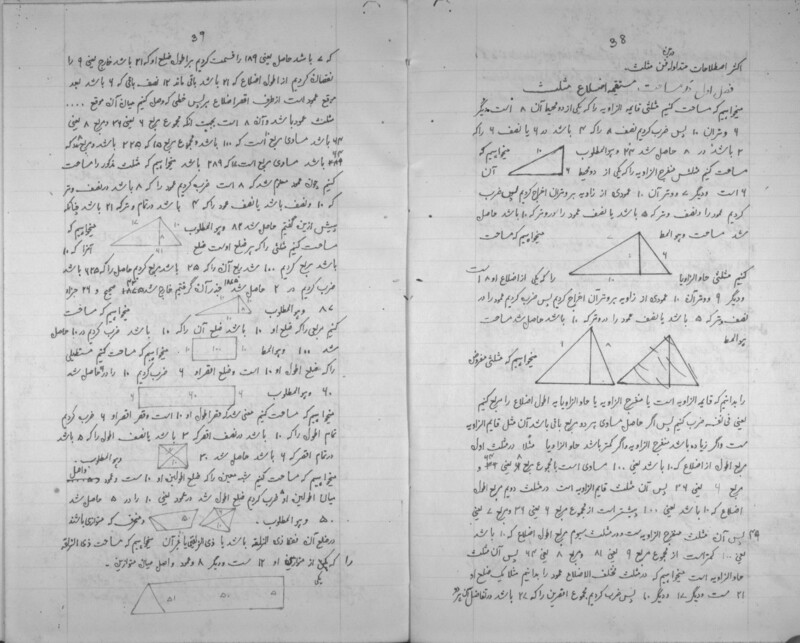 38
اکثر اصطلاحات متداوله فن مثلث
فصل اول در مساحت مستقیمة اضلاع مثلث
میخواهیم که مساحت کنیم مثلثی قایمه الزاویه را که یکی از دو محیط آن ۸ است و دیگر
۶ و وتر آن ۱۰ پس ضرب کردیم نصف ۸ را که ۴ باشد در ۶ یا نصف ۶ را که
۳ باشد در ۸ حاصل شد ۲۴ و هو المطلوب میخواهیم که
مساحت کنیم مثلثی منفرج الزاویه را که یکی از دو محیط آن
۶ است و دیگر ۷ و وتر آن ۱۰ عمودی از زاویه بر وتر آن اخراج کردیم پس ضرب
کردیم عمود را در نصف وتر که ۵ باشد یا نصف عمود را در وتر که ۱۰ باشد حاصل
شد مساحت و هو المط میخواهیم که مساحت
کنیم مثلثی حاد الزوایا را که یکی از اضلاع او ۸ است
و دیگر ۹ و وتر آن ۱۰ عمودی از زاویه بر وتر آن اخراج کردیم پس ضرب کردیم عمود را در
نصف وتر که ۵ باشد یا نصف عمود را در وتر که ۱۰ باشد حاصل شد مساحت
و هو المط
میخواهیم که مثلثی مفروض
را بدانیم که قایمه الزاویه است یا منفرج الزاویه یا حاد الزوایا به اطول اضلاع را مربع کنیم
یعنی فی نفسه ضرب کنیم پس اگر حاصل مساوی هر دو مربع باقی باشد آن مثلث قایم الزاویه
است و اگر زیاده باشد منفرج الزاویه و اگر کمتر باشد حاد الزوایا مثلا در مثلث اول
مربع اطول از اضلاع که ۱۰ باشد یعنی ۱۰۰ مساوی است با مجموع مربع ۸ یعنی ۶۴ و
مربع ۶ یعنی ۳۶ پس آن مثلث قایم الزاویه است در مثلث دویم مربع اطول
اضلاع که ۱۰ باشد یعنی ۱۰۰ بیشتر است از مجموع مربع ۶ یعنی ۳۶ و مربع ۷ یعنی
۴۹ پس آن مثلث منفرج الزاویه است و در مثلث سیوم مربع اطول اضلاع که ۱۰ باشد
یعنی ۱۰۰ کمتر است از مجموع مربع ۹ یعنی ۸۱ و مربع ۸ یعنی ۶۴ پس آن مثلث
حاد الزوایه است میخواهیم که در مثلث مختلف الاضلاع عمود را بدانیم مثلا یک ضلع او
۲۱ است و دیگر ۱۷ و دیگر ۱۰ پس ضرب کردیم مجموع اقصرین را که ۲۷ باشد در تفاضل آن هر دو
39
که ۷ باشد حاصل یعنی ۱۸۹ را قسمت کردیم بر اطول ضلع او که ۲۱ باشد خارج یعنی ۹ را
نقصان کردیم از اطول اضلاع که ۲۱ باشد باقی ماند ۱۲ نصف باقی که ۶ باشد بعد
موقع عمود است از طرف اقصر اضلاع پس خطی که وصل کنیم میان آن موقع
مثلث عمود باشد و آن ۸ است بجهت آنکه مجموع مربع ۶ یعنی ۳۶ و مربع ۸ یعنی
۶۴ باشد مساوی مربع ۱۰ است که ۱۰۰ باشد و مجموع مربع ۱۵ که ۲۲۵ باشد و مربع ۸ که
۶۴ باشد مساوی مربع ۱۷ است که ۲۸۹ باشد میخواهیم که مثلث مذکور را مساحت
کنیم چون عمود معلوم شد که ۸ است ضرب کردیم عمود را که ۸ باشد در نصف وتر
که ۱۰ و نصف باشد یا نصف عمود را که ۴ باشد در تمام وتر که ۲۱ باشد چنانکه
پیش ازین گفتیم حاصل شد ۸۴ و هو المطلوب میخواهیم که
مساحت کنیم مثلثی را که هر ضلع اوست ضلع آنرا که ۱۰
باشد مربع کردیم ۱۰۰ شد ربع آن را که ۲۵ باشد مربع کردیم حاصل را که ۶۲۵ باشد
ضرب کردیم در ۳ حاصل شد ۱۸۷۵ جذر آن گرفتیم خارج شد صحیح و ۲۶ جزاء
۸۷ و هو المطلوب میخواهیم که مساحت
کنیم مربعی را که ضلع او ۱۰ باشد ضلع آن را که ۱۰ باشد ضرب کردیم در ۱۰ حاصل
شد ۱۰۰ و هو المط میخواهیم که مساحت کنیم مستطیلی
را که ضلع اطول او ۱۰ است و ضلع اقصر او ۶ ضرب کردیم ۱۰ را در ۶ حاصل شد
۶۰ و هو المطلوب
میخواهیم که مساحت کنیم معینی را که قطر اطول او ۱۰ است و قطر اقصر او ۶ ضرب کردیم
تمام اطول را که ۱۰ باشد در نصف اقصر که ۳ باشد یا نصف اطول را که ۵ باشد
در تمام اقصر که ۶ باشد حاصل شد ۳۰ و هو المطلوب
میخواهیم که مساحت کنیم شبه معین را که ضلع اطولین او ۱۰ است و عمود واصل
میان اطولین او ۵ ضرب کردیم ضلع اطول در عمود یعنی ۱۰ را در ۵ حاصل شد
۵۰ و هو المطلوب و منحرف که متوازی باشد
در ضلع آن فقط ذی الزنقه باشد یا ذی الزنقتین یا غیر آن میخواهیم که مساحت ذی الزنقه
را که یکی از متوازیین او ۱۲ است و دیگر ۸ و عمود واصل میان متوازیین